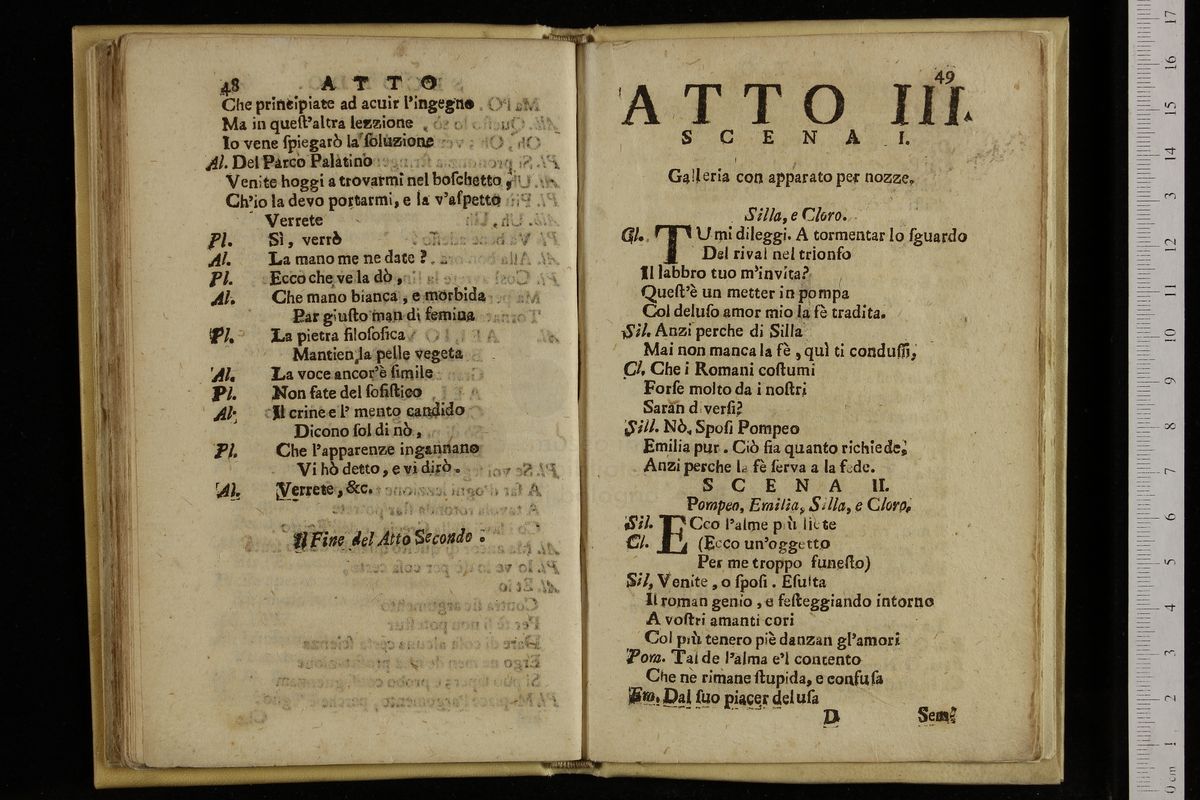 48 ATTO
Che principiate ad acuir l'ingegno
Ma in quest'altra lezzione
Io vene spiegarò la soluzione
Al. Del Parco Palatino
Venite hoggi a trovarmi nel boschetto,
Ch'io la devo portarmi, e la v'aspetto
Verrete
Pl. Sì, verrò
Al. La mano me ne date?
Pl. Ecco che ve la dò,
Al. Che mano bianca, e morbida
Par giusto man di femina
Pl. La pietra filosofica
Mantien la pelle vegeta
Al. La voce ancor'è simile
Pl. Non fate del sofistico
Al. Il crine e l' mento candido
Dicono sol di nò,
Pl. Che l'apparenze ingannano
Vi hò detto, e vi dirò.
Al. Verrete, &c.
Il Fine del Atto Secondo.
49
ATTO III.
SCENA I.
Galleria con apparato per nozze.
Silla, e Cloro.
Cl. TU mi dileggi. A tormentar lo sguardo
Del rival nel trionfo
Il labbro tuo m'invita?
Quest'è un metter in pompa
Col deluso amor mio la fè tradita.
Sil. Anzi perche di Silla
Mai non manca la fè, quì ti condussi,
Cl. Che i Romani costumi
Forse molto da i nostri
Saran diversi?
Sill. Nò, Sposi Pompeo
Emilia pur. Ciò sia quanto richiede,
Anzi perche la fè serva a la fede.
SCENA II.
Pompeo, Emilia, Silla, e Cloro.
Sil. ECco l'alme più liete
Cl. (Ecco un'oggetto
Per me troppo funesto)
Sil, Venite, o sposi. Esulta
Il roman genio, e festeggiando intorno
A vostri amanti cori
Col più tenero piè danzan gl'amori
Pom. Tal de l'alma e'l contento
Che ne rimane stupida, e confusa
Em. Dal suo piacer delusa
D Sem-